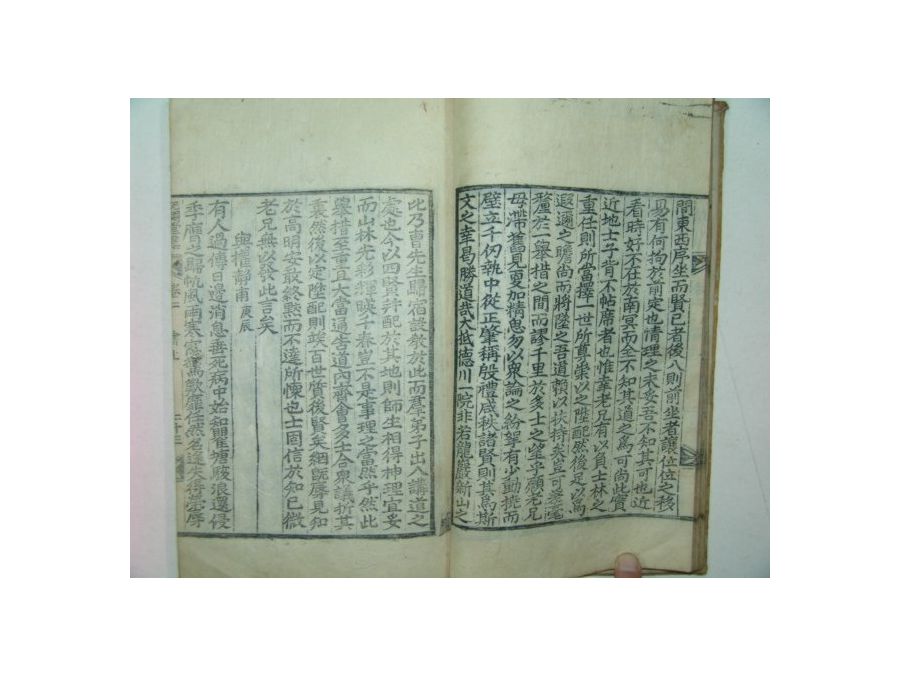 間東西序坐而賢已者後入則前坐者讓位位之移
易有何拘於前定也情理之未妥吾不知其可也近
看時好不在於南冥而全不知其道之爲可尚此實
近地士子背不帖席者也惟幸老兄有以負士林之
重任則所當擇一世所尊崇以之陞配然後足以爲
遐邇之瞻尚而將墜之吾道賴以扶持矣豈可差毫
釐於一擧措之間而謬千里於多士之望乎願老兄
毋帶舊見更加精思勿以衆論之紛挐有少動撓而
壁立千仞執中從正肇稱殷禮咸秩諸賢則其爲斯
文之幸曷勝道哉大抵德川一院非若龍巖新山之
此乃曺先生歸宿設敎於此而羣弟子出入講道之
處也今以四賢幷配於其地則師生相得神理宜妥
而山林光彩輝暎千春豈不是事理之當然乎然此
擧措至重且大當過告道內齊會多士合衆議折其
衷然後以定陞配則竢百世質後賢矣綢旣厚見知
於高明安敢終默而不達所懷也士固信於知已微
老兄無以發此言矣
與權靜甫 庚辰
有人過傳日邊消息垂死病中始聞崔塘駿浪還侵
季鷹之歸帆風雨寒窓驚歎